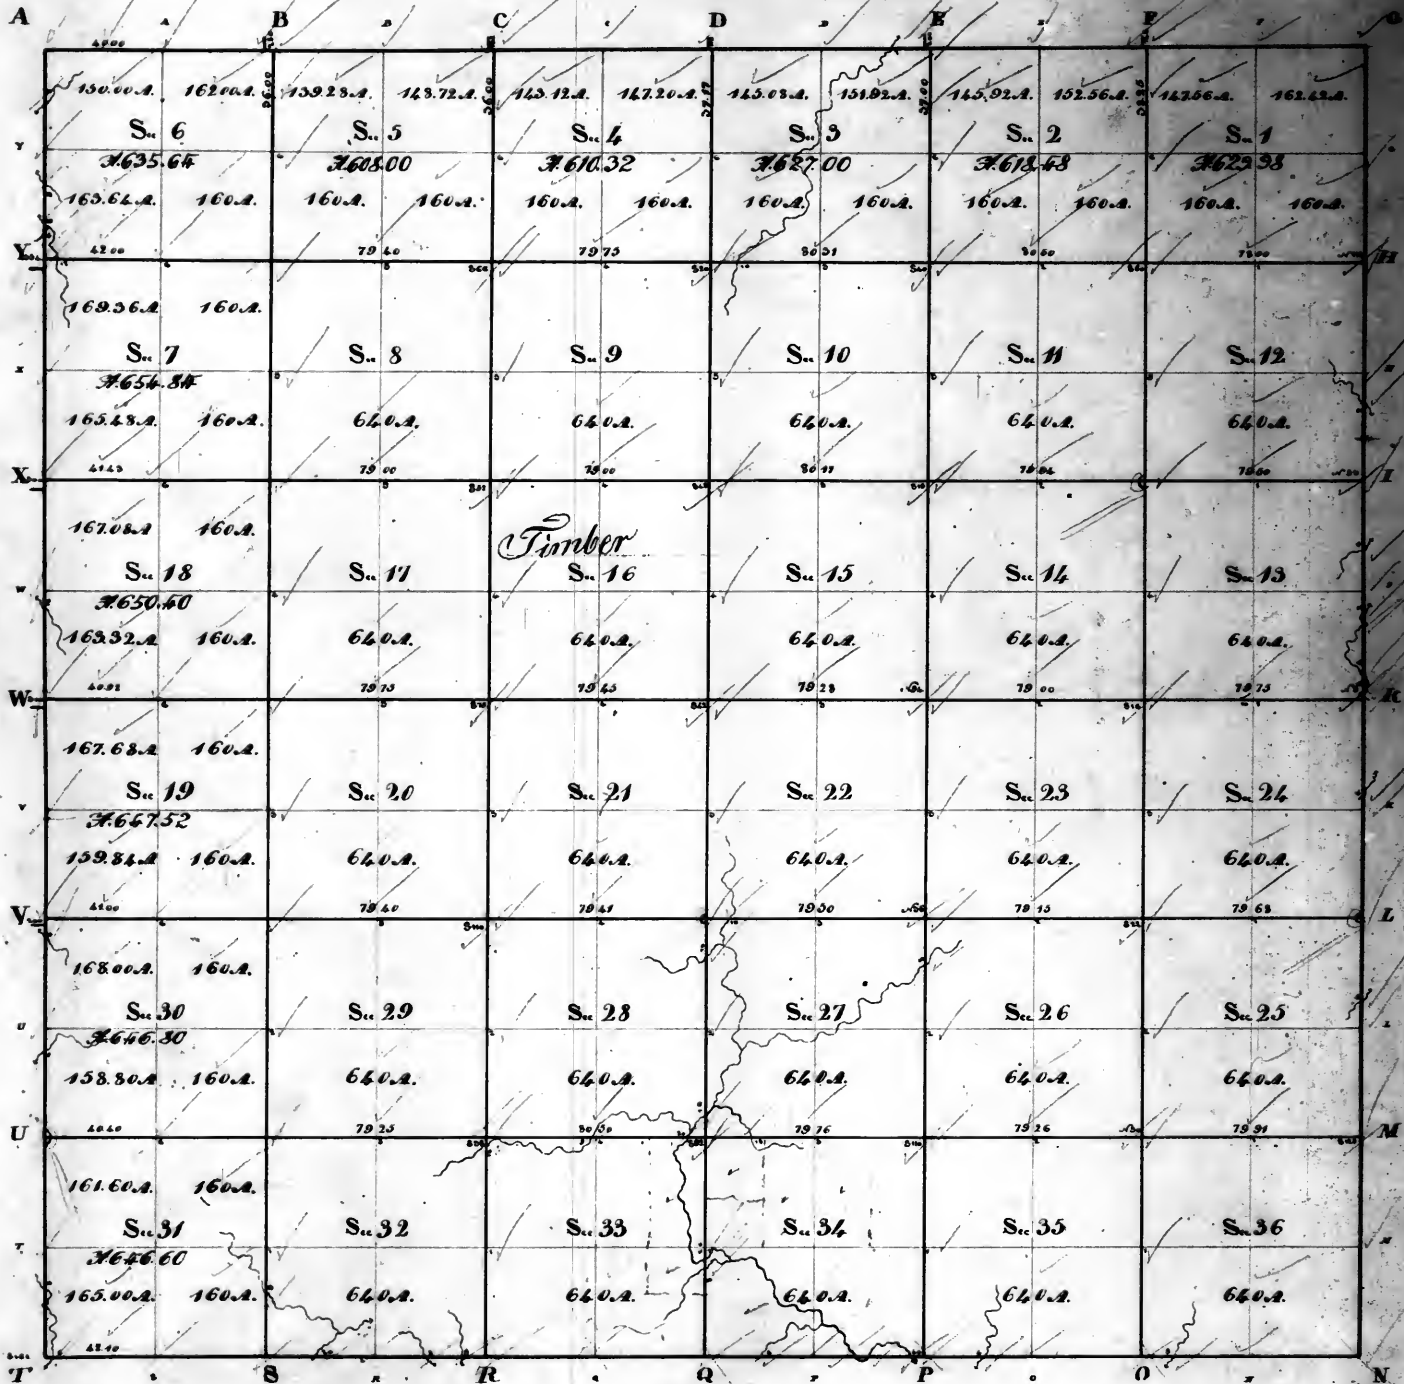 A B C D E F G
40.00
150.00A. 162.00A. 36.00 139.28A. 148.72A. 36.00 143.12A. 147.20A. 37.17 145.08A. 151.92A. 37.00 145.92A. 152.56A. 38.25 147.56A. 162.42A.
Sec 6 Sec 5 Sec 4 Sec 3 Sec 2 Sec 1
A.635.64 A.608.00 A.610.32 A.627.00 A.618.48 A.629.98
163.64A. 160A. 160A. 160A. 160A. 160A. 160A. 160A. 160A. 160A. 160A. 160A.
Y 42.00 79.40 79.75 80.31 80.60 78.00 H
169.36A 160A.
Sec 7 Sec 8 Sec 9 Sec 10 Sec 11 Sec 12
A.654.84
165.48A. 160A. 640A. 640A. 640A. 640A. 640A.
X 41.43 79.00 79.00 80.17 79.84 79.60 I
167.08A 160A.
Timber
Sec 18 Sec 17 Sec 16 Sec 15 Sec 14 Sec 13
A.650.40
163.32A 160A. 640A. 640A. 640A. 640A. 640A.
W 40.92 79.75 79.45 79.28 79.00 79.75 K
167.68A 160A.
Sec 19 Sec 20 Sec 21 Sec 22 Sec 23 Sec 24
A.647.52
159.84A 160A. 640A. 640A. 640A. 640A. 640A.
V 41.00 79.40 79.41 79.50 79.15 79.68 L
168.00A. 160A.
Sec 30 Sec 29 Sec 28 Sec 27 Sec 26 Sec 25
A.646.80
158.80A 160A. 640A. 640A. 640A. 640A. 640A.
U 40.40 79.25 80.50 79.76 79.26 79.91 M
161.60A. 160A.
Sec 31 Sec 32 Sec 33 Sec 34 Sec 35 Sec 36
A.646.60
165.00A. 160A. 640A. 640A. 640A. 640A. 640A.
42.10
T S R Q P O N